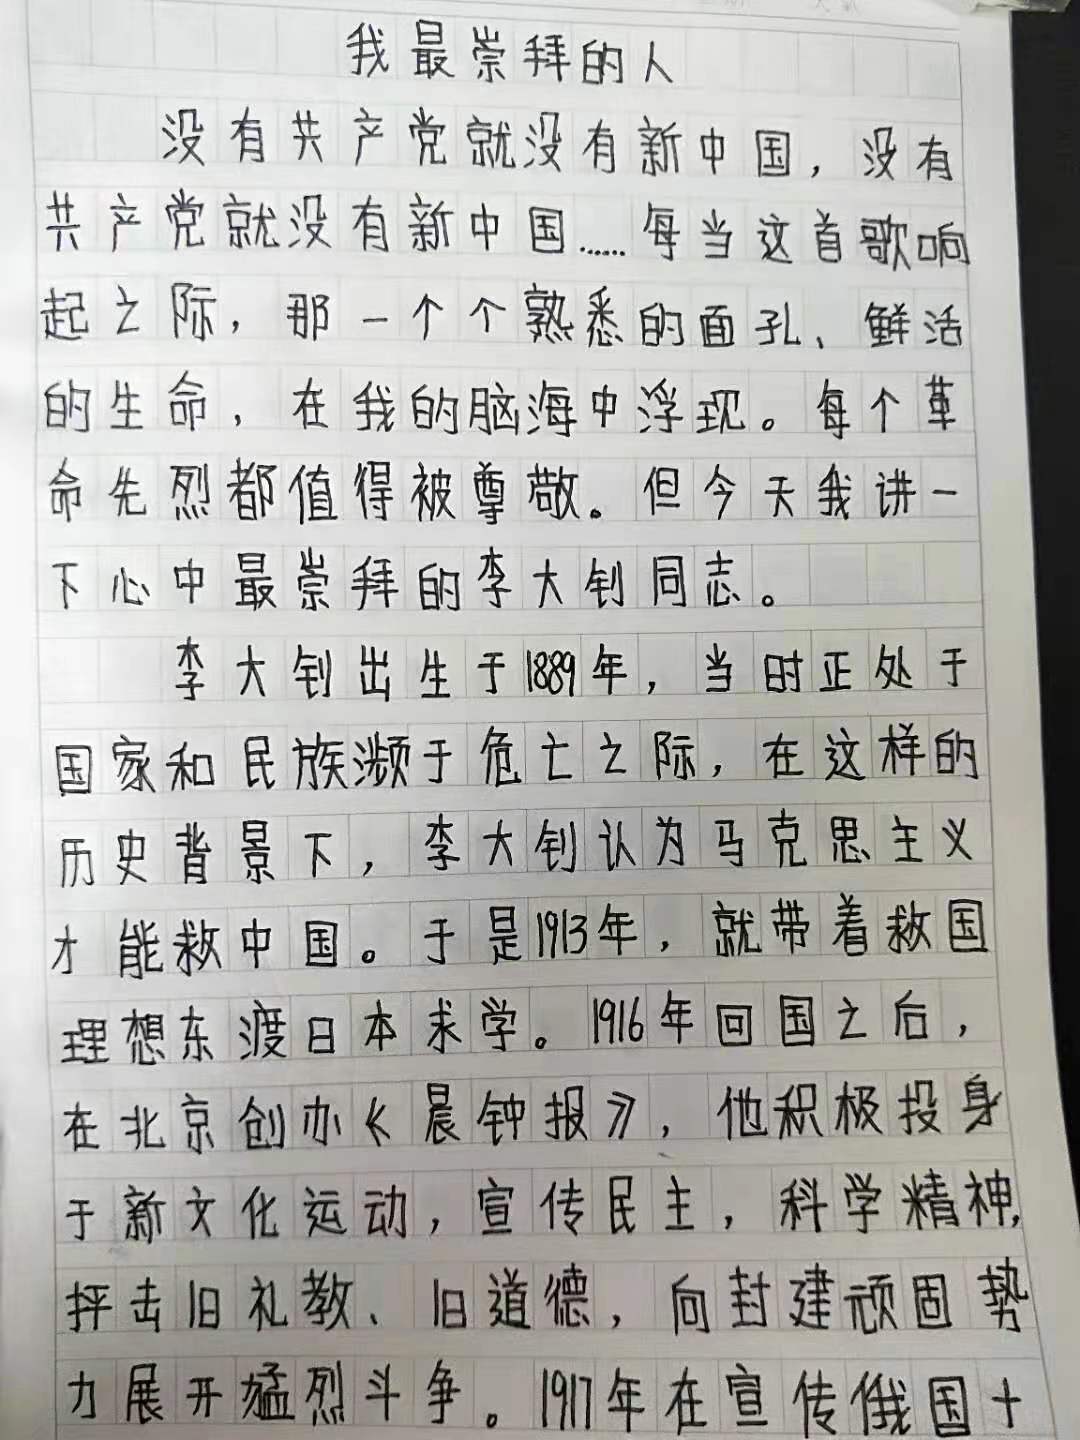 我最崇拜的人
没有共产党就没有新中国，没有
共产党就没有新中国……每当这首歌响
起之际，那一个个熟悉的面孔、鲜活
的生命，在我的脑海中浮现。每个革
命先烈都值得被尊敬。但今天我讲一
下心中最崇拜的李大钊同志。
李大钊出生于1889年，当时正处于
国家和民族濒于危亡之际，在这样的
历史背景下，李大钊认为马克思主义
才能救中国。于是1913年，就带着救国
理想东渡日本求学。1916年回国之后，
在北京创办《晨钟报》，他积极投身
于新文化运动，宣传民主，科学精神，
抨击旧礼教、旧道德，向封建顽固势
力展开猛烈斗争。1917年在宣传俄国十